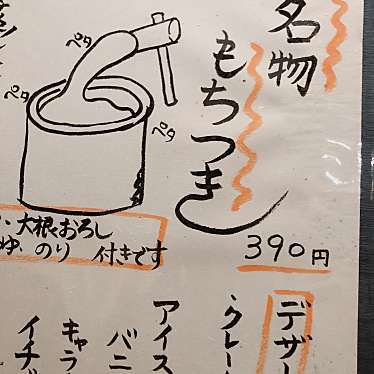 名物
もちつき
390円
ペタ
ペタ
ペタ
大根おろし
ゆ、のり 付きです
デザー
クレー
アイス
バニ
キャラ
イチ